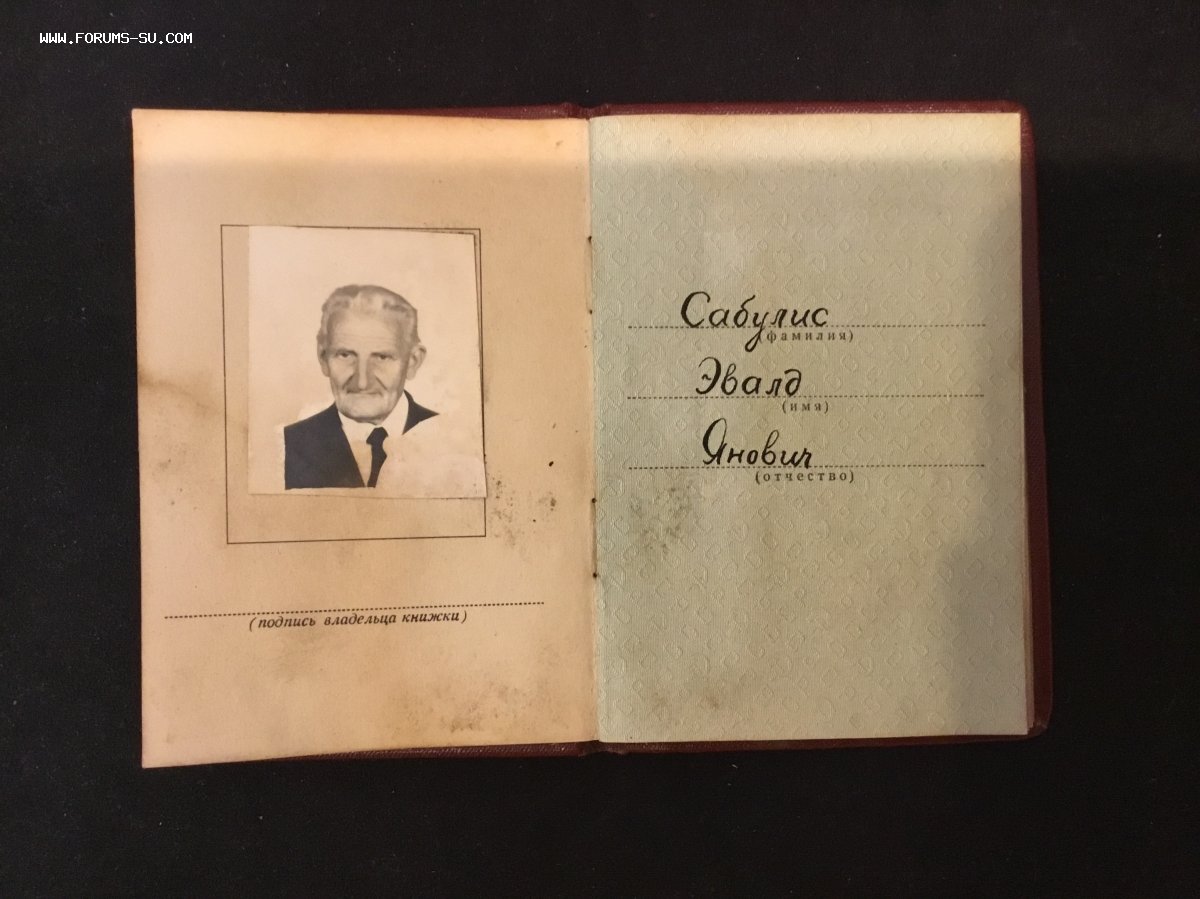 WWW.FORUMS-SU.COM
(подпись владельца книжки)
Сабулис
(фамилия)
Эвалд
(имя)
Янович
(отчество)